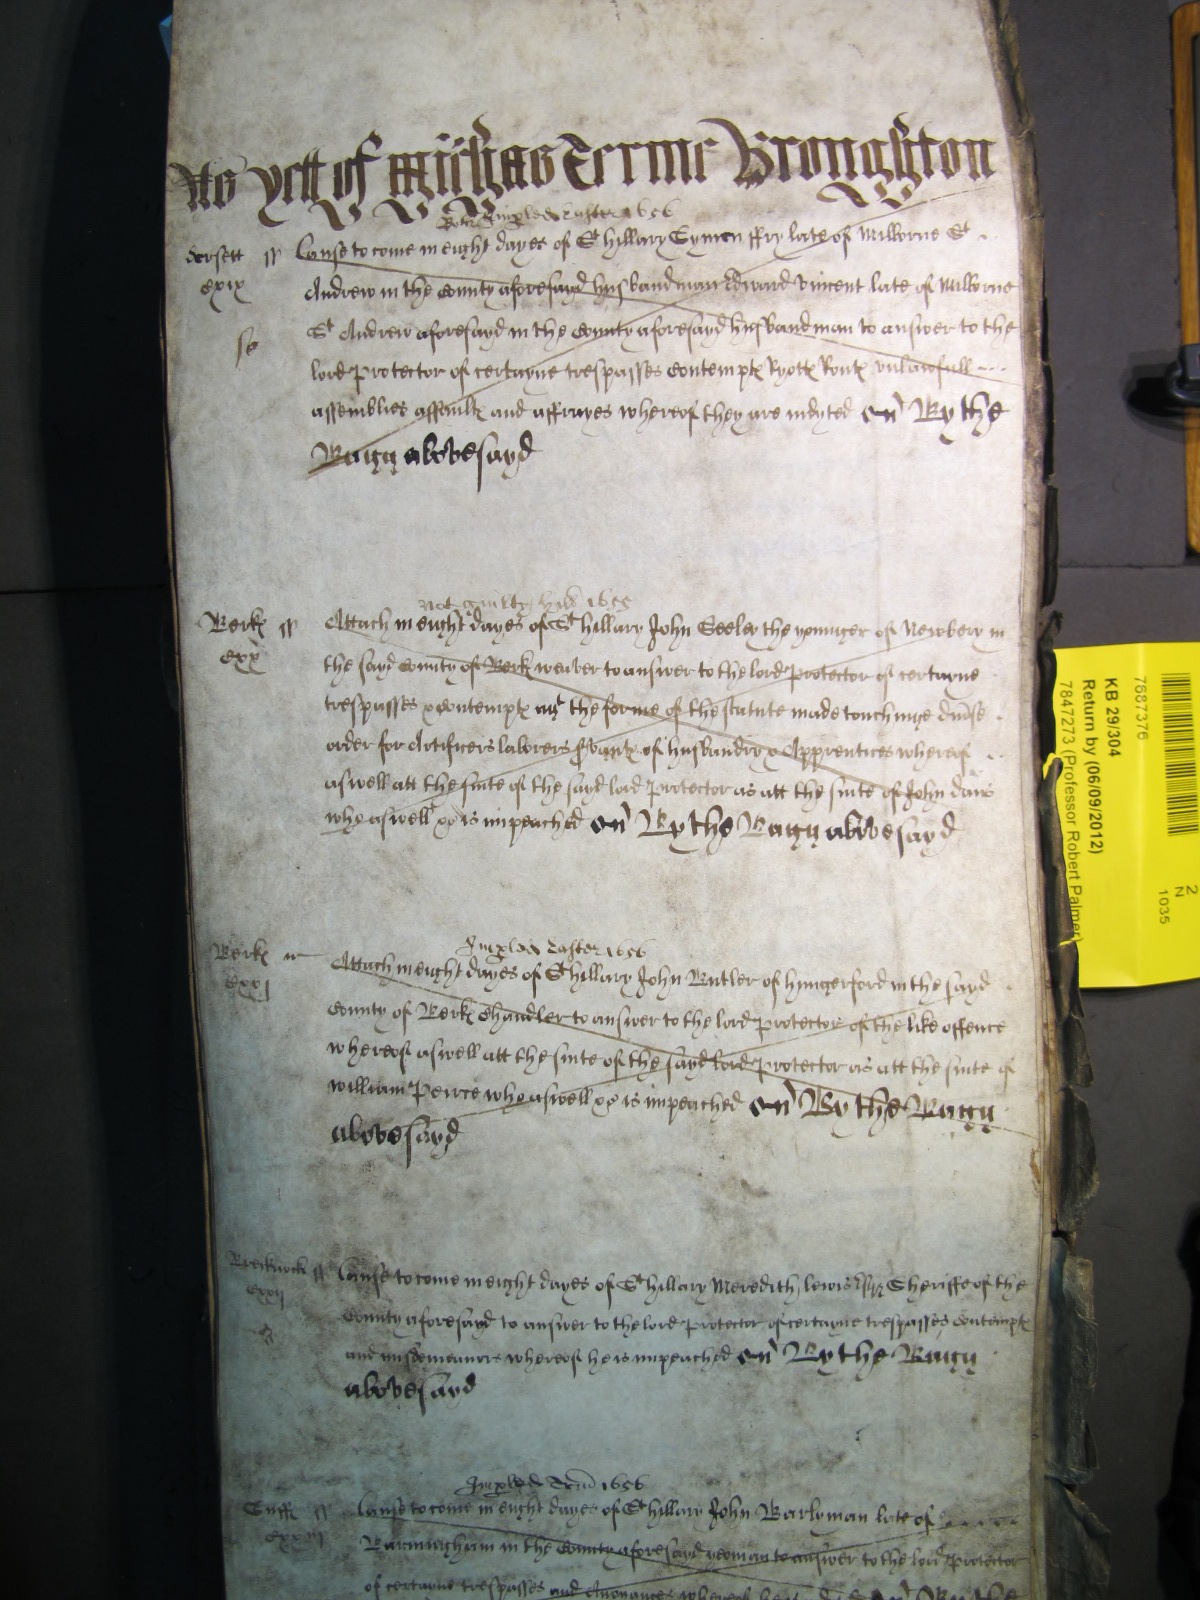 As yett of Michas Terme Broughton
Impled Easter 1656
dorsett ss Cause to come in eight dayes of St hillary Symon ffry late of Milborne St
cxix Andrew in the County aforesayd husbandman Edward Vincent late of Milborne
St Andrew aforesayd in the County aforesayd husbandman to answer to the
lord Protector of certayne trespasses Contempts Ryotts Routs unlawfull
assemblies assaults and affrayes whereof they are indyted By the
Bagg abovesayd
not guilty 1655
Berks ss Attach in eight dayes of St hillary John Seeley the younger of Newbery in
cxx the sayd County of Berk weaver to answer to the lord Protector of certayne
trespasses & contempts the forme of the statute made touchinge
order for Artificers laborers of husbandry & Apprentices whereof
aswell att the suite of the sayd lord Protector as att the suite of John
who aswell &c is impeached By the Bagg abovesayd
Impled Easter 1656
Berks Attach in eight dayes of St hillary John Butler of hungerford in the sayd
cxxj County of Berks Chandler to answer to the lord Protector of the like offence
whereof aswell att the suite of the sayd lord Protector as att the suite of
william Peirce who aswell &c is impeached By the Bagg
abovesayd
Brecknock ss Cause to come in eight dayes of St hillary Meredith lewis Esqr Sheriffe of the
cxxij County aforesayd to answer to the lord Protector of certayne trespasses Contempts
and misdemeanors whereof he is impeached By the Bagg
abovesayd
Impled 1656
Suff ss Cause to come in eight dayes of St hillary John Barlyman late of
cxxiij Barmingham in the County aforesayd yeoman to answer to the lord Protector
of certayne trespasses and
7687376
KB 29/304
Return by (06/09/2012)
7847273 (Professor Robert Palmer)
2
N
1035